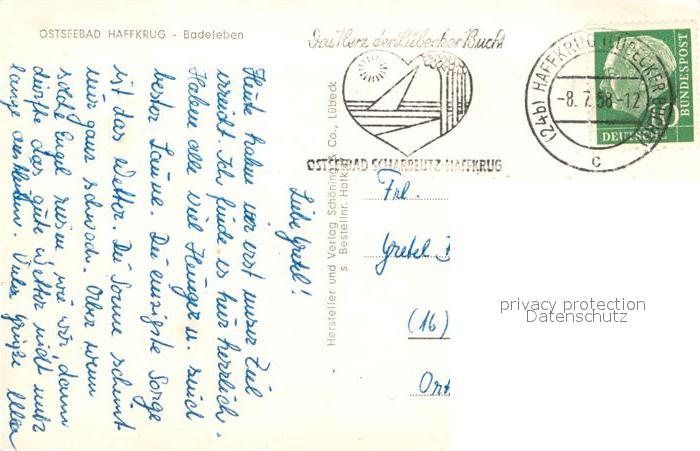 OSTSEEBAD HAFFKRUG - Badeleben
Das Herz der Lübecker Bucht
OSTSEEBAD SCHARBEUTZ-HAFFKRUG
(24b) HAFFKRUG LÜBECKER
-8.7.58-12
c
DEUTSCHE
BUNDESPOST
Hersteller und Verlag Schöning & Co., Lübeck
s. Bestellnr.
Liebe Gretel!
Heute haben wir erst unser Ziel
erreicht. Ich finde es hier herrlich.
Haben alle viel Hunger u. sind
bester Laune. Die einzigste Sorge
ist das Wetter. Die Sonne scheint
nur ganz schwach. Aber wenn
solche Engel reisen wie wir, dann
dürfte das gute Wetter nicht mehr
lange ausbleiben. Viele Grüße
Frl.
Gretel
(16)
Ort
privacy protection
Datenschutz